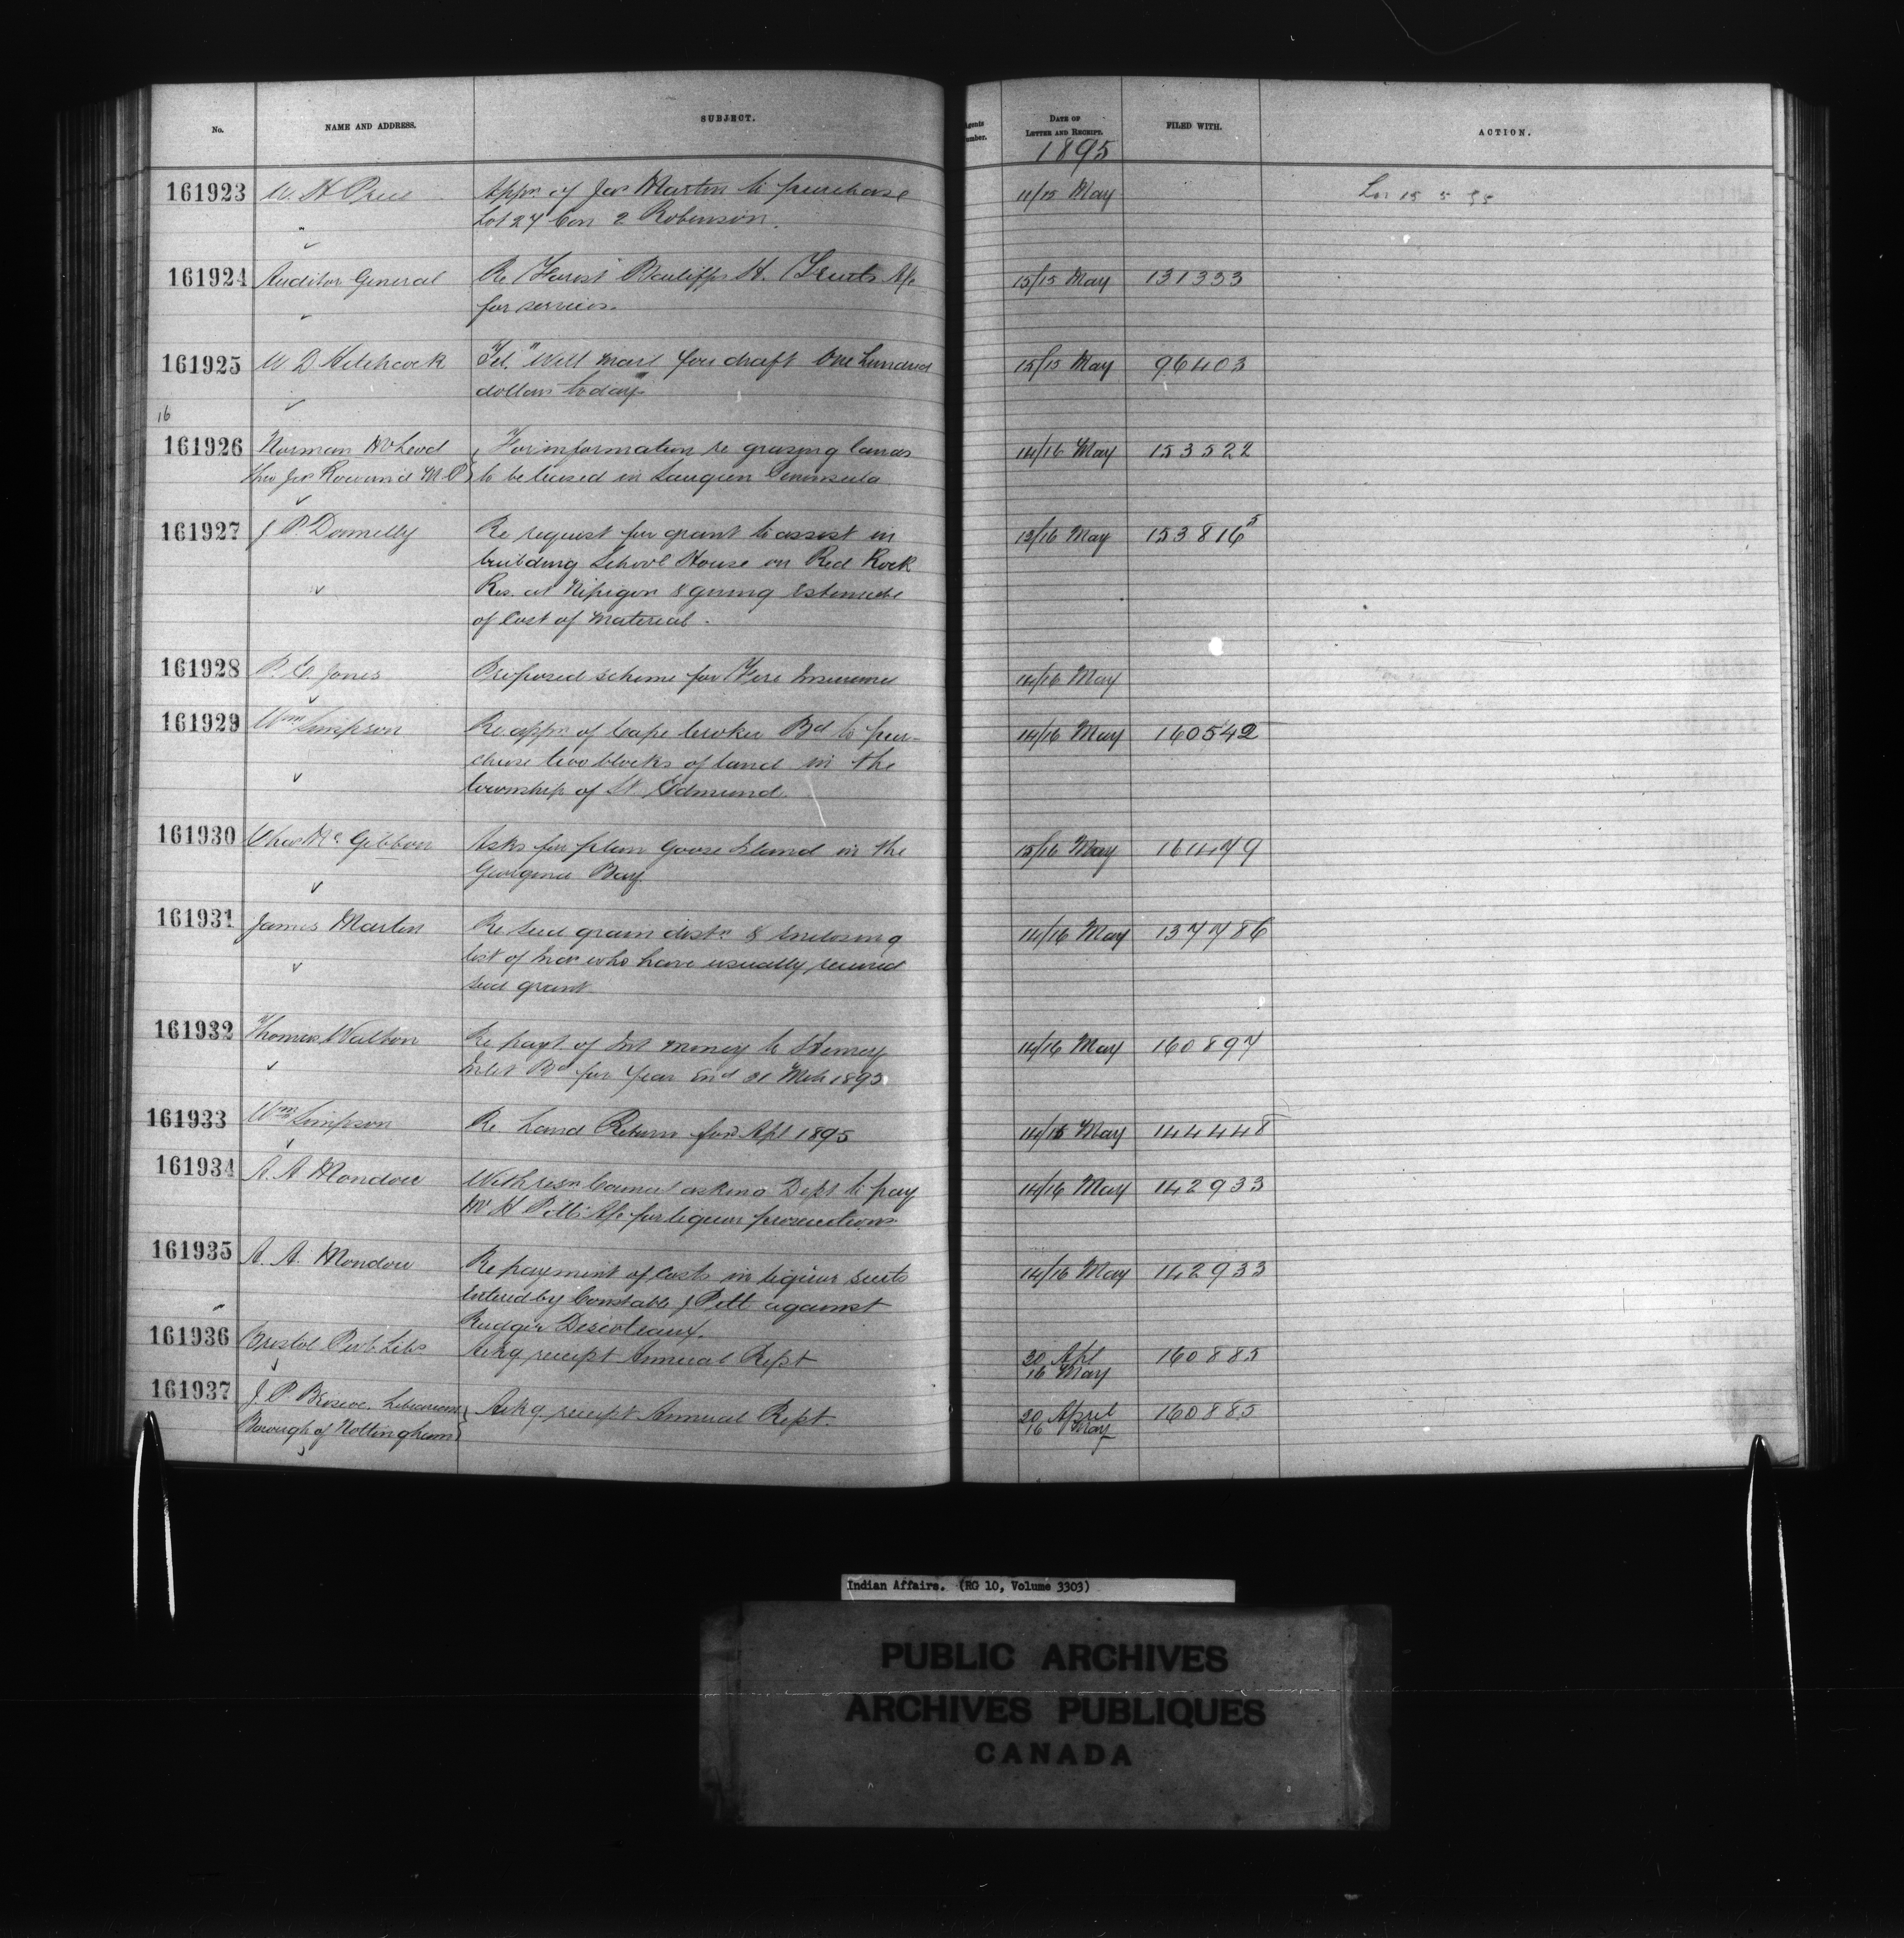 No. NAME AND ADDRESS. SUBJECT. Agents Number. DATE OF LETTER AND RECEIPT. FILED WITH. ACTION.
1895
161923 W. H. Price Appn of Jas Martin to purchase 11/15 May
Lot 27 Con 2 Robinson.
161924 Auditor General Re Forest Bailiff H. A/c 15/15 May 131333
for services.
161925 W D Hitchcock Tel. "Will mail you draft One hundred 15/15 May 96403
dollars today"
16
161926 Norman McLeod For information re grazing lands 14/16 May 153522
thro Jas Rowand M.P. to be leased in Saugeen Peninsula
161927 J P. Donnelly Re request for grant to assist in 13/16 May 153816 5
building School House on Red Rock
Res. at Nipigon & giving Estimate
of Cost of Material.
161928 P. E. Jones Proposed scheme for Fire Insurance 14/16 May
161929 Wm Simpson Re. appn of Cape Croker Bd to pur- 14/16 May 160542
chase two blocks of land in the
township of St. Edmund.
161930 Chas Mc Gibbon Asks for plan Goose Island in the 15/16 May 161479
Georgian Bay
161931 James Martin Re seed grain distn & Enclosing 14/16 May 137786
list of who have usually received
seed grant
161932 Thomas Walton Re payt. of Int money to Henvey 14/16 May 160897
Inlet Bd for year End 31 Mch 1895
161933 Wm Simpson Re. Land Return for Apl 1895 14/15 May 144448
161934 A. A Mondou With resn Council asking Dept to pay 14/16 May 142933
A/c for liquor prosecutions
161935 A. A. Mondou Re payment of Costs in liquor suits 14/16 May 142933
Entered by Constable J Pitt against
161936 Bristol Pub. Libs Ackg receipt Annual Rept 20 Apl 160885
16 May
161937 J. P. Briscoe, Librarian Ackg. receipt Annual Rept. 20 April 160885
Borough of Nottingham 16 May
Indian Affairs. (RG 10, Volume 3303)
PUBLIC ARCHIVES
ARCHIVES PUBLIQUES
CANADA